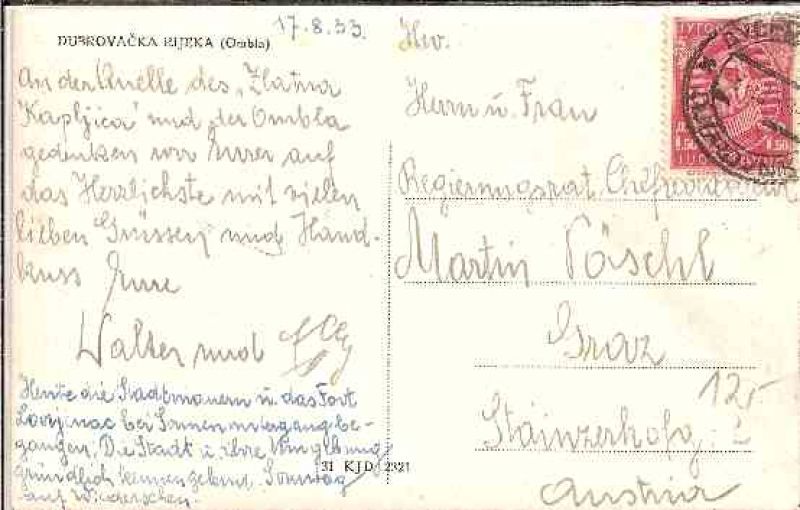 17.8.33.
DUBROVAČKA RIJEKA (Ombla)
An der Quelle des „Zlatna
Kapljica" und der Ombla
gedenken wir Eurer auf
das Herzlichste mit vielen
lieben Grüssen und Hand-
kuss Eure
Walter und
Heute die Stadtmauern u. das Fort
Lovrjenac bei Sonnenuntergang be-
gangen. Die Stadt u. ihre Umgebung
gründlich kennengelernt. Sonntag
auf Wiedersehen.
31 KJD 2321
Hev.
Herrn u. Frau
Regierungsrat
Martin Pöschl
Graz
12.-
Stainzerhofg.
Austria
1.50 1.50